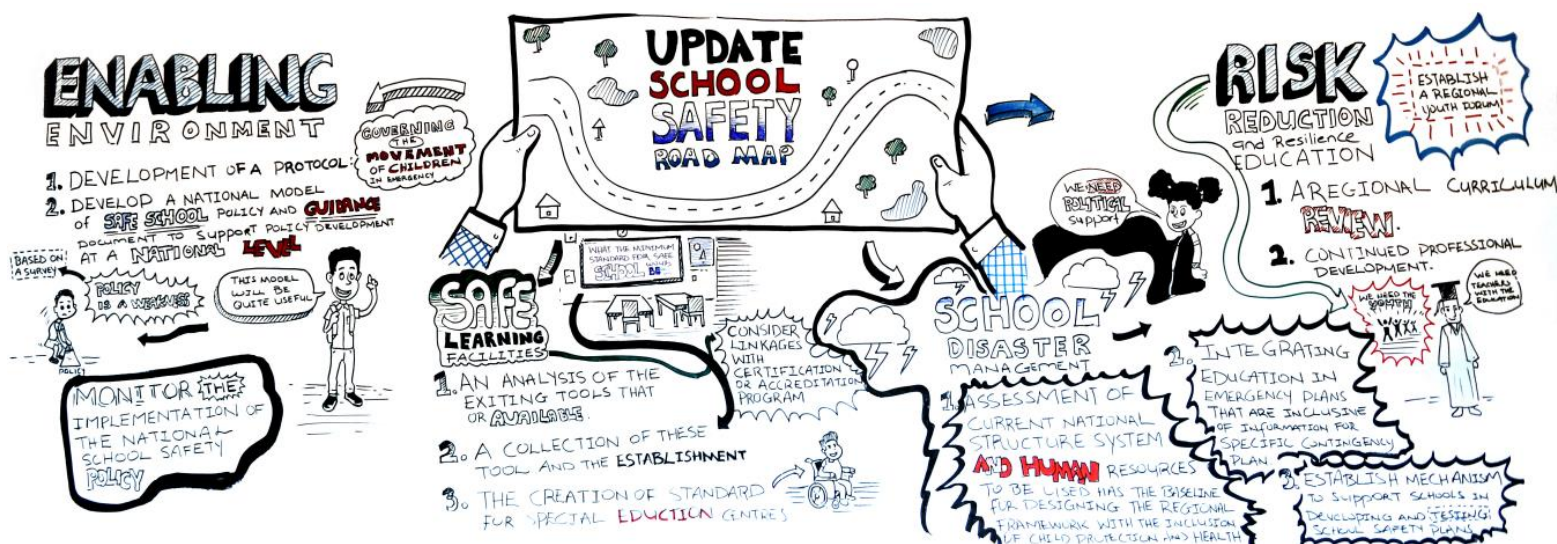 UPDATE
SCHOOL
SAFETY
ROAD MAP
ENABLING
ENVIRONMENT
1. DEVELOPMENT OF A PROTOCOL:
GOVERNING
THE
MOVEMENT
OF CHILDREN
IN EMERGENCY
2. DEVELOP A NATIONAL MODEL
of SAFE SCHOOL POLICY AND GUIDANCE
DOCUMENT TO SUPPORT POLICY DEVELOPMENT
AT A NATIONAL LEVEL
BASED ON
A SURVEY
POLICY
IS A WEAKNESS
THIS MODEL
WILL BE
QUITE USEFUL
POLICY
MONITOR THE
IMPLEMENTATION OF
THE NATIONAL
SCHOOL SAFETY
POLICY
WHAT THE MINIMUM
STANDARD FOR SAFE
SCHOOL
BE
SAFE
LEARNING
FACILITIES
1. AN ANALYSIS OF THE
EXITING TOOLS THAT
OR AVAILABLE.
2. A COLLECTION OF THESE
TOOL AND THE ESTABLISHMENT
3. THE CREATION OF STANDARD
FOR SPECIAL EDUCTION CENTRES
CONSIDER
LINKAGES
WITH
CERTIFICATION
OR ACCREDITATION
PROGRAM
SCHOOL
DISASTER
MANAGEMENT
1. ASSESSMENT OF
CURRENT NATIONAL
STRUCTURE SYSTEM
AND HUMAN RESOURCES
TO BE USED HAS THE BASELINE
FOR DESIGNING THE REGIONAL
FRAMEWORK WITH THE INCLUSION
OF CHILD PROTECTION AND HEALTH
2. INTEGRATING
EDUCATION IN
EMERGENCY PLANS
THAT ARE INCLUSIVE
OF INFORMATION FOR
SPECIFIC CONTINGENCY
PLAN
3. ESTABLISH MECHANISM
TO SUPPORT SCHOOLS IN
DEVELOPING AND TESTING
SCHOOL SAFETY PLANS
WE NEED
POLITICAL
Support
RISK
REDUCTION
and Resilience
EDUCATION
ESTABLISH
A REGIONAL
YOUTH FORUM
1. A REGIONAL CURRICULUM
REVIEW.
2. CONTINUED PROFESSIONAL
DEVELOPMENT.
WE NEED THE
YOUTH
WE NEED
TEACHERS
WITH THE
EDUCATION